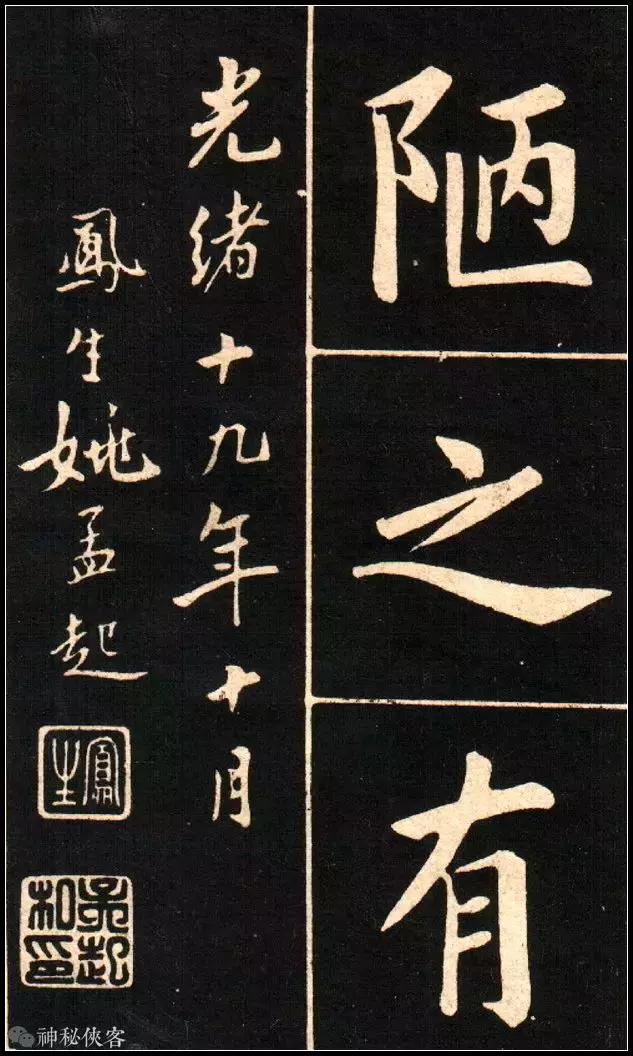 陋之有
光緒十九年十月
鳳生姚孟起
鳳生
孟起私印
神秘俠客